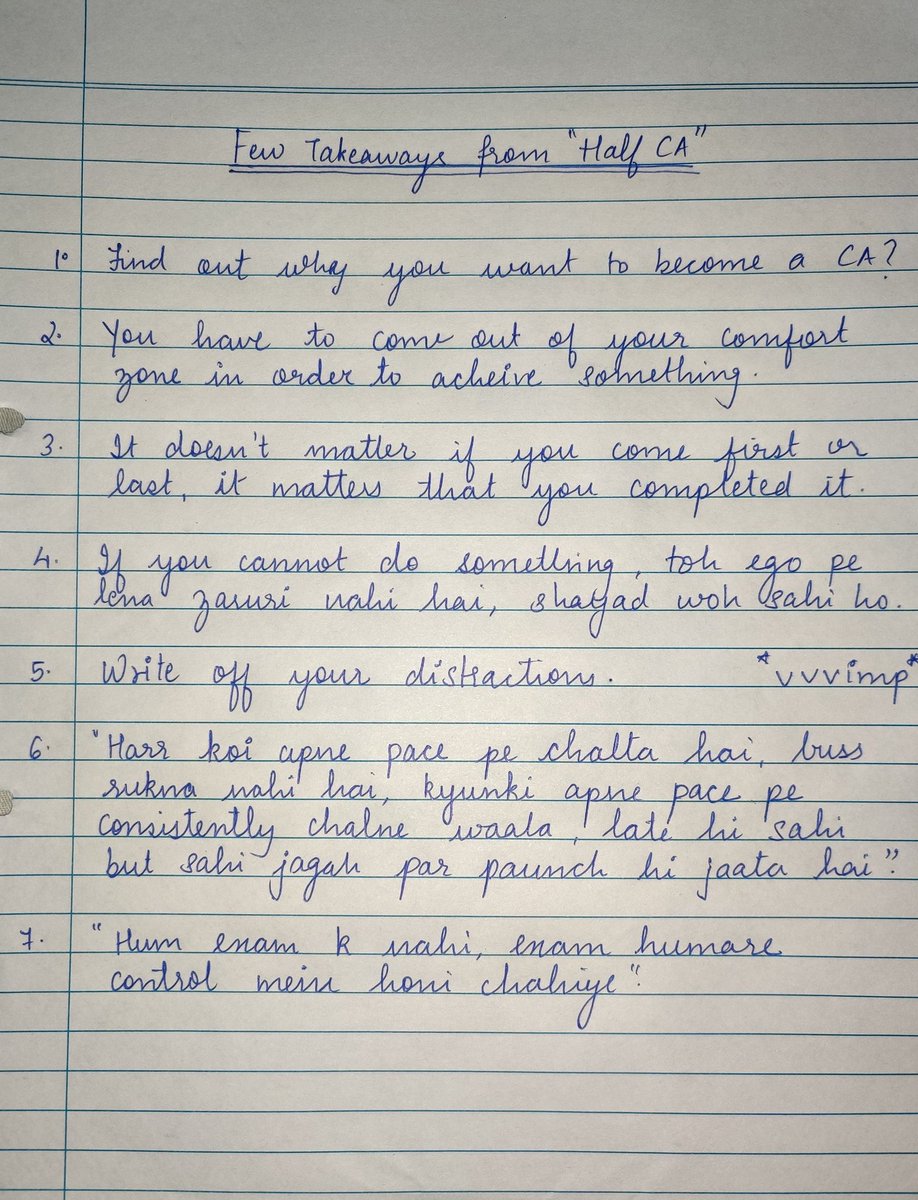 Few Takeaways from "Half CA"
1. Find out why you want to become a CA?
2. You have to come out of your comfort
zone in order to acheive something.
3. It doesn't matter if you come first or
last, it matters that you completed it.
4. If you cannot do something, toh ego pe
lena zaruri nahi hai, shayad woh sahi ho.
5. Write off your distractions. *vvvimp*
6. "Harr koi apne pace pe chalta hai, buss
rukna nahi hai, kyunki apne pace pe
consistently chalne waala, late hi sahi
but sahi jagah par paunch hi jaata hai".
7. "Hum exam k nahi, exam humare
control mein honi chahiye".